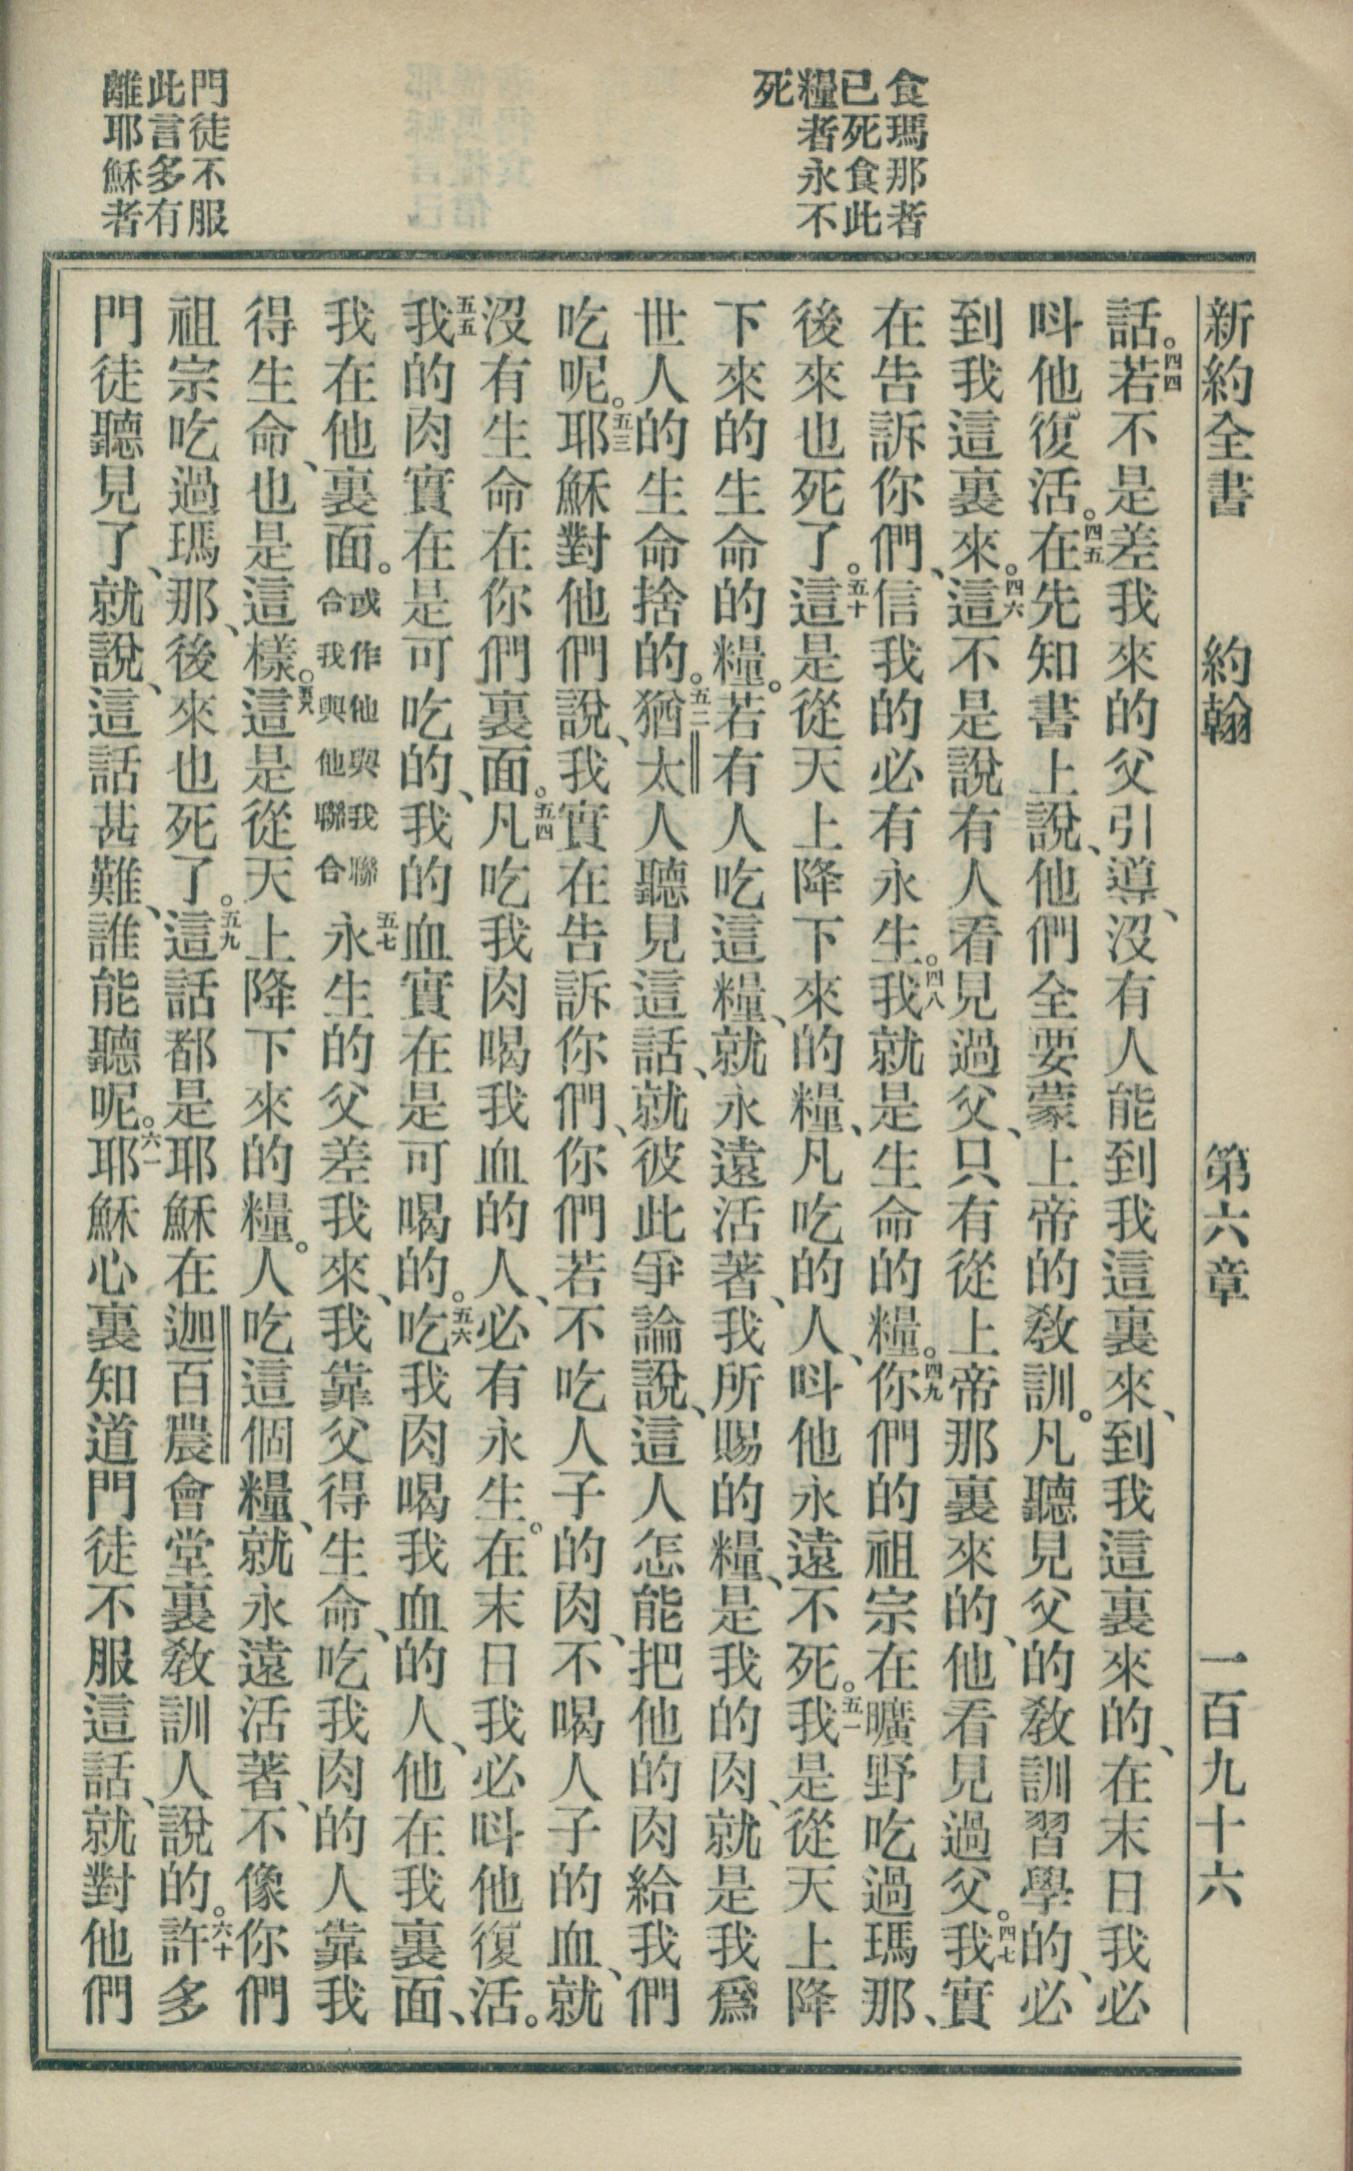 食瑪那者
已死食此
糧者永不
死
門徒不服
此言多有
離耶穌者
新約全書 約翰 第六章 一百九十六
話。四四若不是差我來的父引導、沒有人能到我這裏來、到我這裏來的、在末日我必
呌他復活。四五在先知書上說、他們全要蒙上帝的教訓。凡聽見父的教訓習學的、必
到我這裏來。四六這不是說有人看見過父、只有從上帝那裏來的、他看見過父。四七我實
在告訴你們、信我的必有永生。四八我就是生命的糧。四九你們的祖宗在曠野吃過瑪那、
後來也死了。五十這是從天上降下來的糧、凡吃的人、呌他永遠不死。五一我是從天上降
下來的生命的糧。若有人吃這糧、就永遠活著、我所賜的糧、是我的肉、就是我爲
世人的生命捨的。五二猶太人聽見這話、就彼此爭論說、這人怎能把他的肉給我們
吃呢。五三耶穌對他們說、我實在告訴你們、你們若不吃人子的肉、不喝人子的血、就
沒有生命在你們裏面。五四凡吃我肉喝我血的人、必有永生。在末日我必呌他復活。
五五我的肉實在是可吃的、我的血實在是可喝的。五六吃我肉喝我血的人、他在我裏面、
我在他裏面。或作他與我聯合我與他聯合五七永生的父差我來、我靠父得生命、吃我肉的人靠我
得生命、也是這樣。五八這是從天上降下來的糧。人吃這個糧、就永遠活著、不像你們
祖宗吃過瑪那、後來也死了。五九這話都是耶穌在迦百農會堂裏教訓人說的。六十許多
門徒聽見了、就說、這話甚難、誰能聽呢。六一耶穌心裏知道門徒不服這話、就對他們